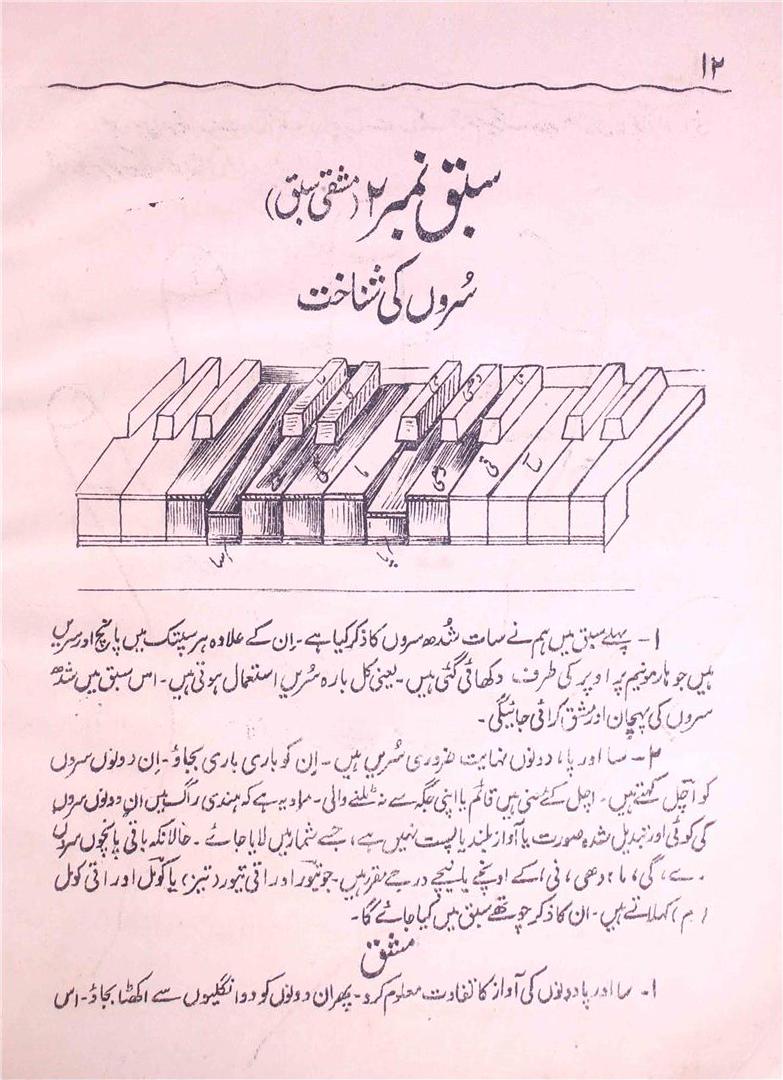 ۱۲
سبق نمبر ۲ (مشقی سبق)
سُروں کی شناخت
رے
گی
ما
دھی
نی
سا
سا
پا
۱- پہلے سبق میں ہم نے سات شُدھ سروں کا ذکر کیا ہے۔ اِن کے علاوہ ہر سپتک میں پانچ اور سریں
ہیں جو ہارمونیم پر اوپر کی طرف دکھائی گئی ہیں۔ یعنی کل بارہ سُریں استعمال ہوتی ہیں۔ اس سبق میں شدھ
سروں کی پہچان اور مشق کرائی جائیگی۔
۲- سا اور پا، دونوں نہایت ضروری سُریں ہیں۔ اِن کو باری باری بجاؤ۔ اِن دونوں سروں
کو اَچل کہتے ہیں۔ اچل کے معنی ہیں قائم یا اپنی جگہ سے نہ ٹلنے والی۔ مراد یہ ہے کہ ہندی راگ میں ان دونوں سروں
کی کوئی اور تبدیل شدہ صورت یا آواز بلند یا پست نہیں ہے، جسے شمار میں لایا جائے۔ حالانکہ باقی پانچوں سروں
رے، گی، ما، دھی، نی، کے اونچے یا نیچے درجے مقرر ہیں۔ جو تیور اور اتی تیور (تیز) یا کومل اور اتی کومل
(نرم) کہلاتے ہیں۔ ان کا ذکر چوتھے سبق میں کیا جائے گا۔
مشق
۱- سا اور پا دونوں کی آواز کا تفاوت معلوم کرو۔ پھر ان دونوں کو دو انگلیوں سے اکٹھا بجاؤ۔ اس